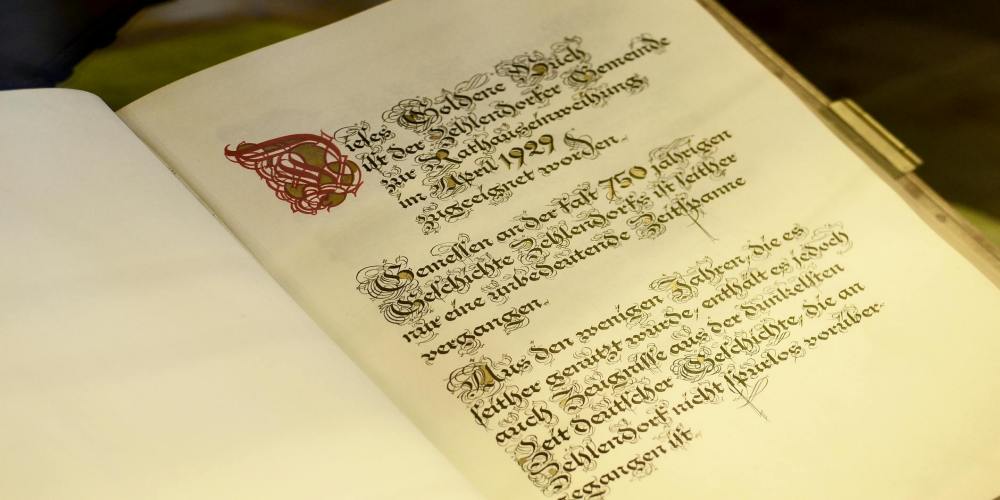 Dieses Goldene Buch
ist der Zehlendorfer Gemeinde
zur Rathauseinweihung
im April 1929
zugeeignet worden.
Gemessen an der fast 750 jährigen
Geschichte Zehlendorfs, ist seither
nur eine unbedeutende Zeitspanne
vergangen.
Aus den wenigen Jahren, die es
seither genutzt wurde, enthält es jedoch
auch Zeugnisse aus der dunkelsten
Zeit deutscher Geschichte, die an
Zehlendorf nicht spurlos vorüber-
gegangen ist.